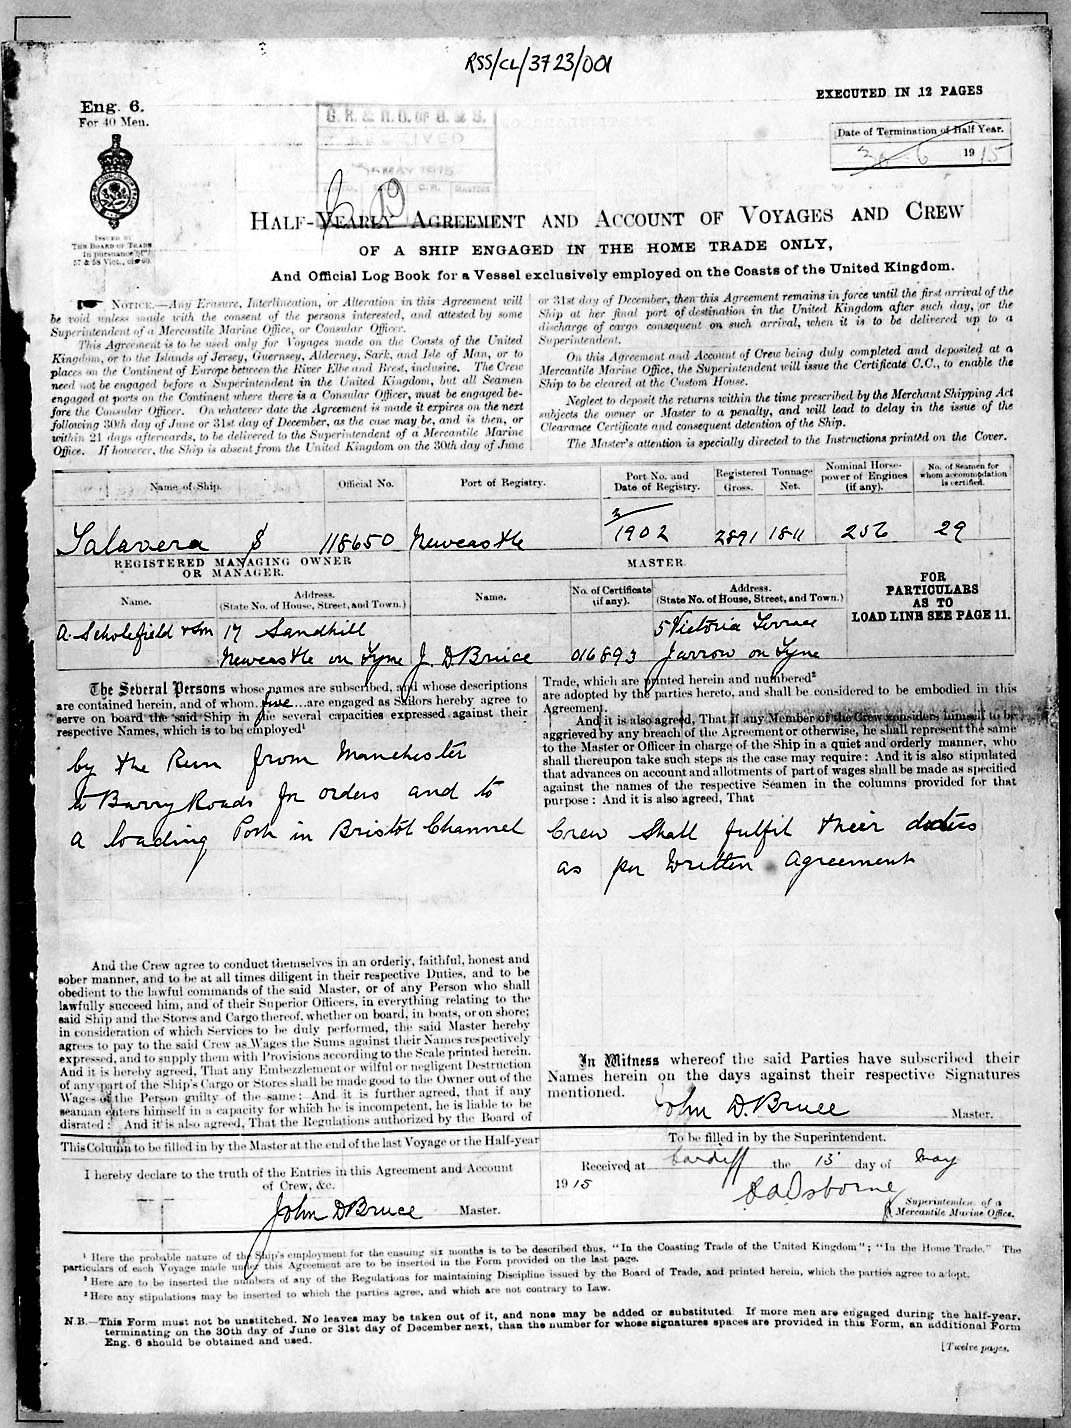 RSS/CL/3723/001
EXECUTED IN 12 PAGES
Eng. 6.
For 40 Men.
G. R. & R. O. OF S. & S.
RECEIVED
MAY 1915
Date of Termination of Half Year.
30 6 1915
ISSUED BY
THE BOARD OF TRADE
In pursuance of
57 & 58 Vict., ch. 60.
HALF-YEARLY AGREEMENT AND ACCOUNT OF VOYAGES AND CREW
OF A SHIP ENGAGED IN THE HOME TRADE ONLY,
And Official Log Book for a Vessel exclusively employed on the Coasts of the United Kingdom.
NOTICE.—Any Erasure, Interlineation, or Alteration in this Agreement will
be void unless made with the consent of the persons interested, and attested by some
Superintendent of a Mercantile Marine Office, or Consular Officer.
This Agreement is to be used only for Voyages made on the Coasts of the United
Kingdom, or to the Islands of Jersey, Guernsey, Alderney, Sark, and Isle of Man, or to
places on the Continent of Europe between the River Elbe and Brest, inclusive. The Crew
need not be engaged before a Superintendent in the United Kingdom, but all Seamen
engaged at ports on the Continent where there is a Consular Officer, must be engaged be-
fore the Consular Officer. On whatever date the Agreement is made it expires on the next
following 30th day of June or 31st day of December, as the case may be, and is then, or
within 21 days afterwards, to be delivered to the Superintendent of a Mercantile Marine
Office. If however, the Ship is absent from the United Kingdom on the 30th day of June
or 31st day of December, then this Agreement remains in force until the first arrival of the
Ship at her final port of destination in the United Kingdom after such day, or the
discharge of cargo consequent on such arrival, when it is to be delivered up to a
Superintendent.
On this Agreement and Account of Crew being duly completed and deposited at a
Mercantile Marine Office, the Superintendent will issue the Certificate C.C., to enable the
Ship to be cleared at the Custom House.
Neglect to deposit the returns within the time prescribed by the Merchant Shipping Act
subjects the owner or Master to a penalty, and will lead to delay in the issue of the
Clearance Certificate and consequent detention of the Ship.
The Master's attention is specially directed to the Instructions printed on the Cover.
Name of Ship. Official No. Port of Registry. Port No. and Date of Registry. Registered Tonnage Gross. Net. Nominal Horse-power of Engines (if any). No. of Seamen for whom accommodation is certified.
Talavera S 118650 Newcastle 3/1902 2891 1811 256 29
REGISTERED MANAGING OWNER
OR MANAGER.
MASTER.
FOR
PARTICULARS
AS TO
LOAD LINE SEE PAGE 11.
Name. Address. (State No. of House, Street, and Town.) Name. No. of Certificate (if any). Address. (State No. of House, Street, and Town.)
A. Scholefield & Son 17 Sandhill 5 Victoria Terrace
Newcastle on Tyne J. D Bruce 016893 Jarrow on Tyne
The Several Persons whose names are subscribed, and whose descriptions
are contained herein, and of whom five are engaged as Sailors hereby agree to
serve on board the said Ship in the several capacities expressed against their
respective Names, which is to be employed¹
by the Run from Manchester
to Barry Roads for orders and to
a loading Port in Bristol Channel
And the Crew agree to conduct themselves in an orderly, faithful, honest and
sober manner, and to be at all times diligent in their respective Duties, and to be
obedient to the lawful commands of the said Master, or of any Person who shall
lawfully succeed him, and of their Superior Officers, in everything relating to the
said Ship and the Stores and Cargo thereof, whether on board, in boats, or on shore;
in consideration of which Services to be duly performed, the said Master hereby
agrees to pay to the said Crew as Wages the Sums against their Names respectively
expressed, and to supply them with Provisions according to the Scale printed herein.
And it is hereby agreed, That any Embezzlement or wilful or negligent Destruction
of any part of the Ship's Cargo or Stores shall be made good to the Owner out of the
Wages of the Person guilty of the same: And it is further agreed, that if any
seaman enters himself in a capacity for which he is incompetent, he is liable to be
disrated: And it is also agreed, That the Regulations authorized by the Board of
Trade, which are printed herein and numbered²
are adopted by the parties hereto, and shall be considered to be embodied in this
Agreement.
And it is also agreed, That if any Member of the Crew considers himself to be
aggrieved by any breach of the Agreement or otherwise, he shall represent the same
to the Master or Officer in charge of the Ship in a quiet and orderly manner, who
shall thereupon take such steps as the case may require: And it is also stipulated
that advances on account and allotments of part of wages shall be made as specified
against the names of the respective Seamen in the columns provided for that
purpose: And it is also agreed, That
Crew shall fulfil their duties
as per written agreement
In Witness whereof the said Parties have subscribed their
Names herein on the days against their respective Signatures
mentioned.
John D. Bruce Master.
This Column to be filled in by the Master at the end of the last Voyage or the Half-year
I hereby declare to the truth of the Entries in this Agreement and Account
of Crew, &c.
John D Bruce Master.
To be filled in by the Superintendent.
Received at Cardiff the 13 day of May
1915
Osborne
Superintendent of a
Mercantile Marine Office.
¹ Here the probable nature of the Ship's employment for the ensuing six months is to be described thus, "In the Coasting Trade of the United Kingdom"; "In the Home Trade." The
particulars of each Voyage made under this Agreement are to be inserted in the Form provided on the last page.
² Here are to be inserted the numbers of any of the Regulations for maintaining Discipline issued by the Board of Trade, and printed herein, which the parties agree to adopt.
³ Here any stipulations may be inserted to which the parties agree, and which are not contrary to Law.
N.B.—This Form must not be unstitched. No leaves may be taken out of it, and none may be added or substituted. If more men are engaged during the half-year,
terminating on the 30th day of June or 31st day of December next, than the number for whose signatures spaces are provided in this Form, an additional Form
Eng. 6 should be obtained and used.
[Twelve pages.